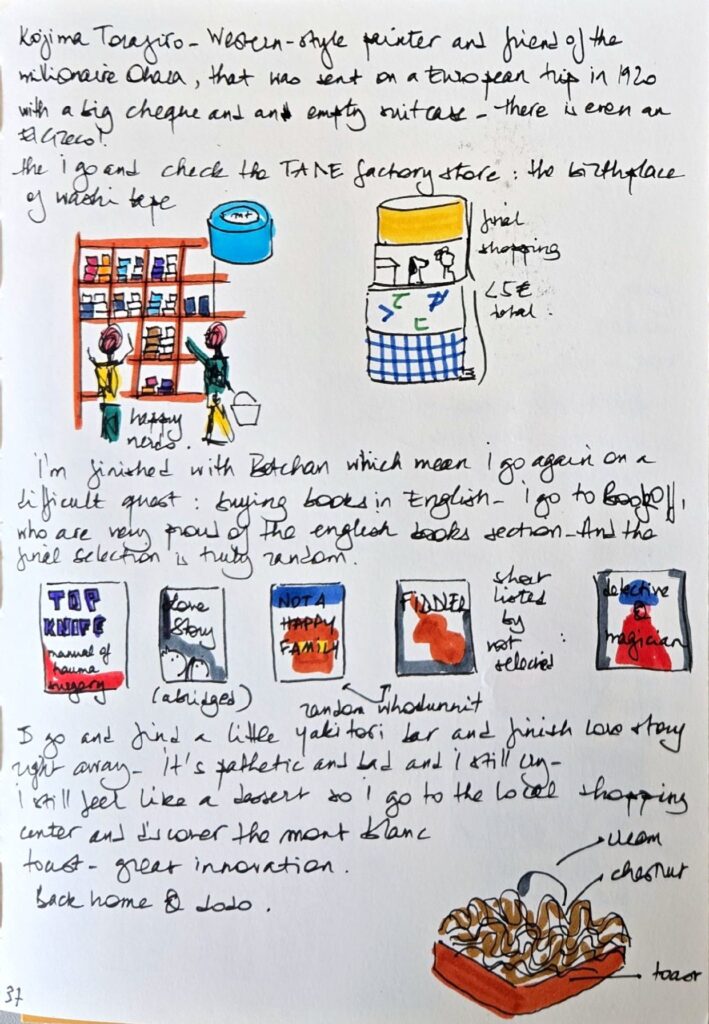 Kojima Torajiro - Western-style painter and friend of the
millionaire Ohara, that was sent on a European trip in 1920
with a big cheque and an empty suitcase - there is even an
El Greco!
the I go and check the TANE factory store : the birthplace
of washi tape
mt
final
shopping
<5€
total.
happy
nerds.
I'm finished with Botchan which mean I go again on a
difficult quest : buying books in English - I go to BookOff,
who are very proud of the english books section - And the
final selection is truly random.
TOP
KNIFE
manual of
trauma
surgery
Love
Story
(abridged)
NOT A
HAPPY
FAMILY
FIDDLER
random whodunnit
short
listed
by
not
selected
:
detective
&
magician
I go and find a little yakitori bar and finish love story
right away - it's pathetic and bad and I still cry -
I still feel like a dessert so I go to the local shopping
center and discover the mont blanc
toast - great innovation.
Back home & dodo.
cream
chestnut
toast
37